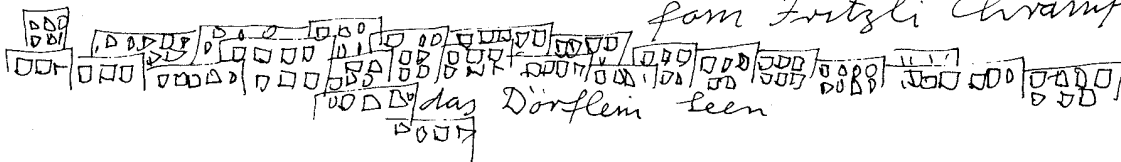 fom Fritzli Chrampf
das Dörflein Seen